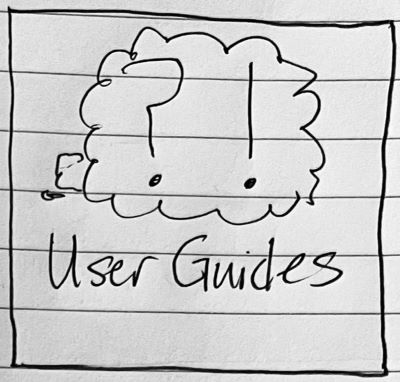 ?!
User Guides